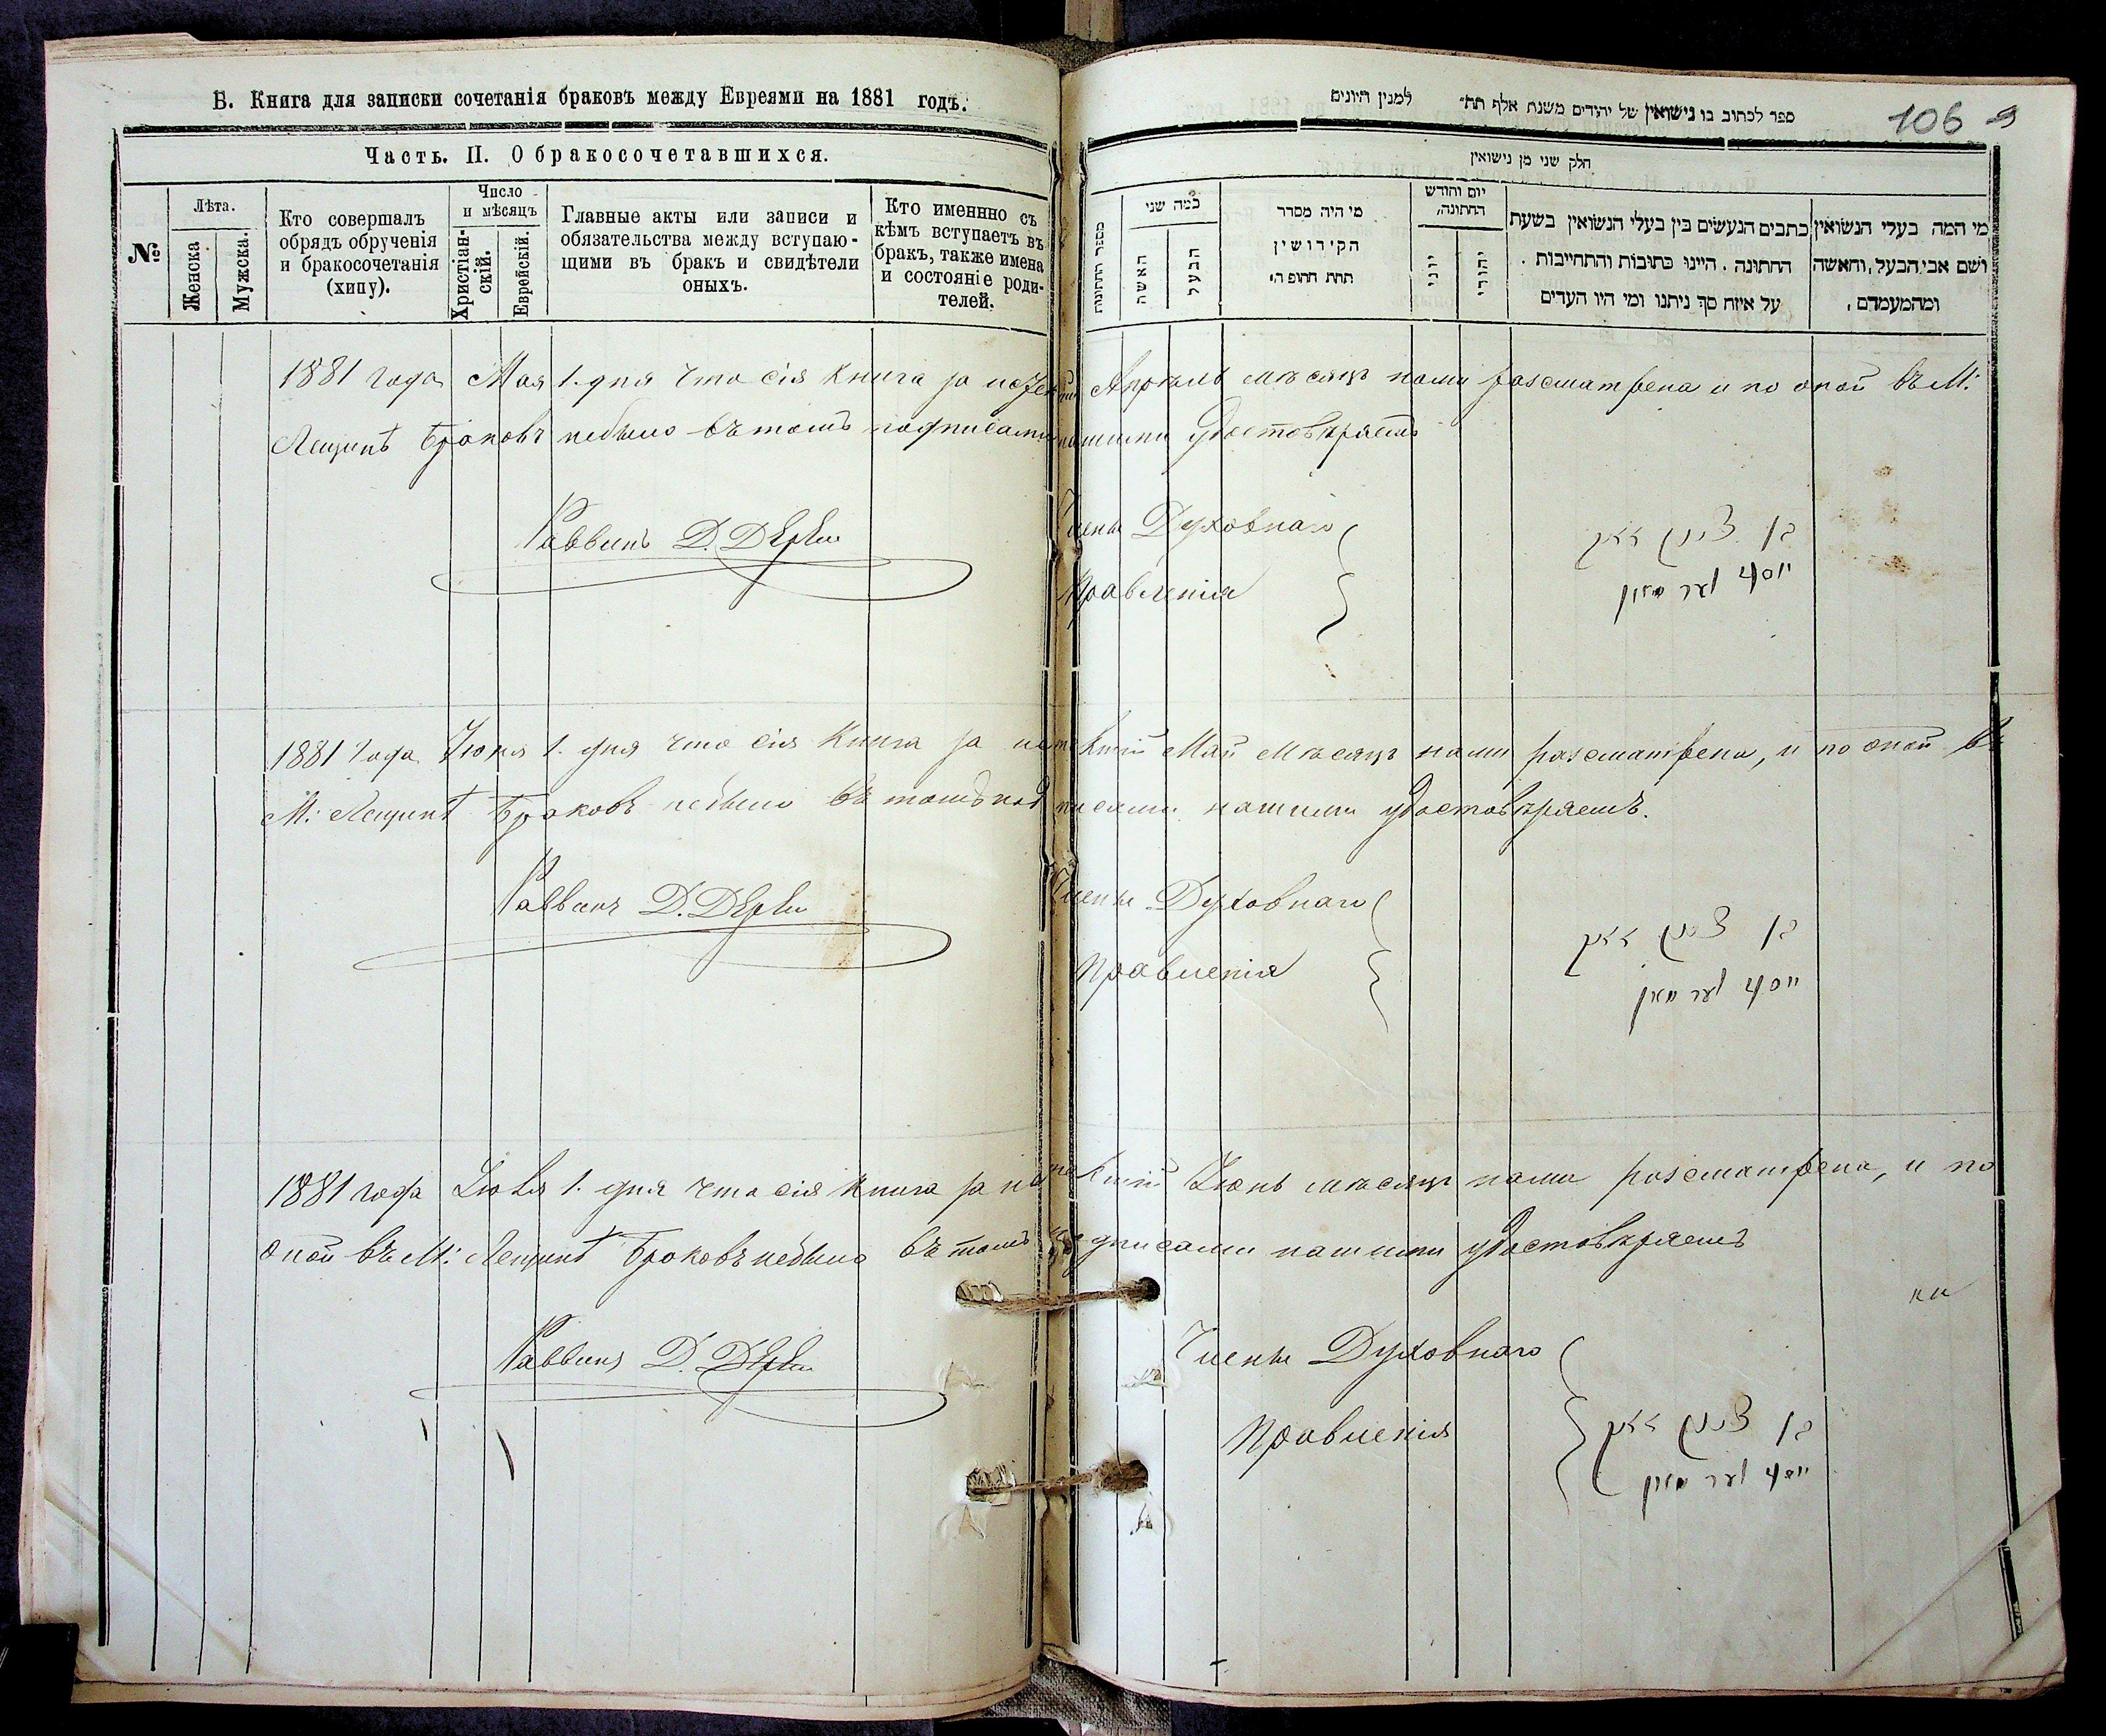 Б. Книга для записки сочетанія браковъ между Евреями на 1881 годъ.
Часть. II. О бракосочетавшихся.
№
Лѣта.
Женска
Мужска.
Кто совершалъ
обрядъ обрученія
и бракосочетанія
(хипу).
Число
и мѣсяцъ
Христіан-
скій.
Еврейскій.
Главные акты или записи и
обязательства между вступаю-
щими въ бракъ и свидѣтели
оныхъ.
Кто именнно съ
кѣмъ вступаетъ въ
бракъ, также имена
и состояніе роди-
телей.
ספר לכתוב בו נישואין של יהודים משנת אלף תת״ למנין היונים
106
חלק שני מן נישואין
מספר החתונות
כמה שני
האשה
הבעל
מי היה מסדר
הקידושין
תחת החופה.
יום וחודש
החתונה.
יוני
יהודי
כתבים הנעשים בין בעלי הנשואין בשעת
החתונה. היינו כתובות והתחייבות.
על איזה סך ניתנו ומי היו העדים
מי המה בעלי הנשואין
ושם אבי הבעל, והאשה
ומהמעמדם.
1881 года Мая 1. дня что сія книга за Апрѣль мѣсяцъ нами разсматрена и по оной въ М:
Лещинѣ браковъ небыло въ томъ подписами нашими удостовѣряемъ
Раввинъ Д.
Члены Духовнаго
Правленія
בן ציון
יוסף
1881 года Июня 1. дня что сія книга за истекшій Май мѣсяцъ нами разсматрена, и по оной въ
М: Лещинѣ браковъ небыло въ томъ подписами нашими удостовѣряемъ.
Раввинъ Д.
Члены Духовнаго
Правленія
בן ציון
יוסף
1881 года Июля 1. дня что сія книга за истекшій Июнь мѣсяцъ нами разсматрена, и по
оной въ М: Лещинѣ браковъ небыло въ томъ подписами нашими удостовѣряемъ
Раввинъ Д.
Члены Духовнаго
Правленія
בן ציון
יוסף